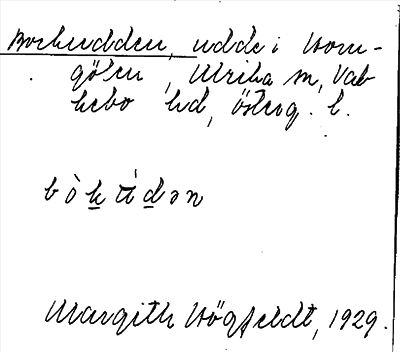 Borkudden, udde i Horn-
gölen, Ulrika sn, Val-
kebo hd, Österg. l.
Margith Högfeldt, 1929.